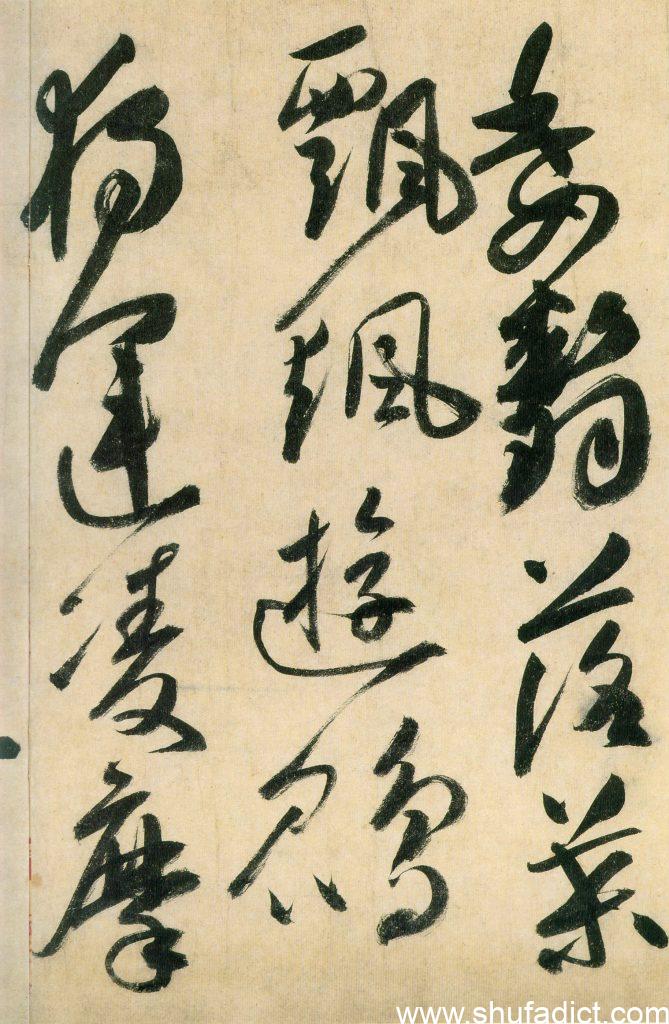 委翳落葉
飄颻遊鵾
獨運凌摩
www.shufadict.com